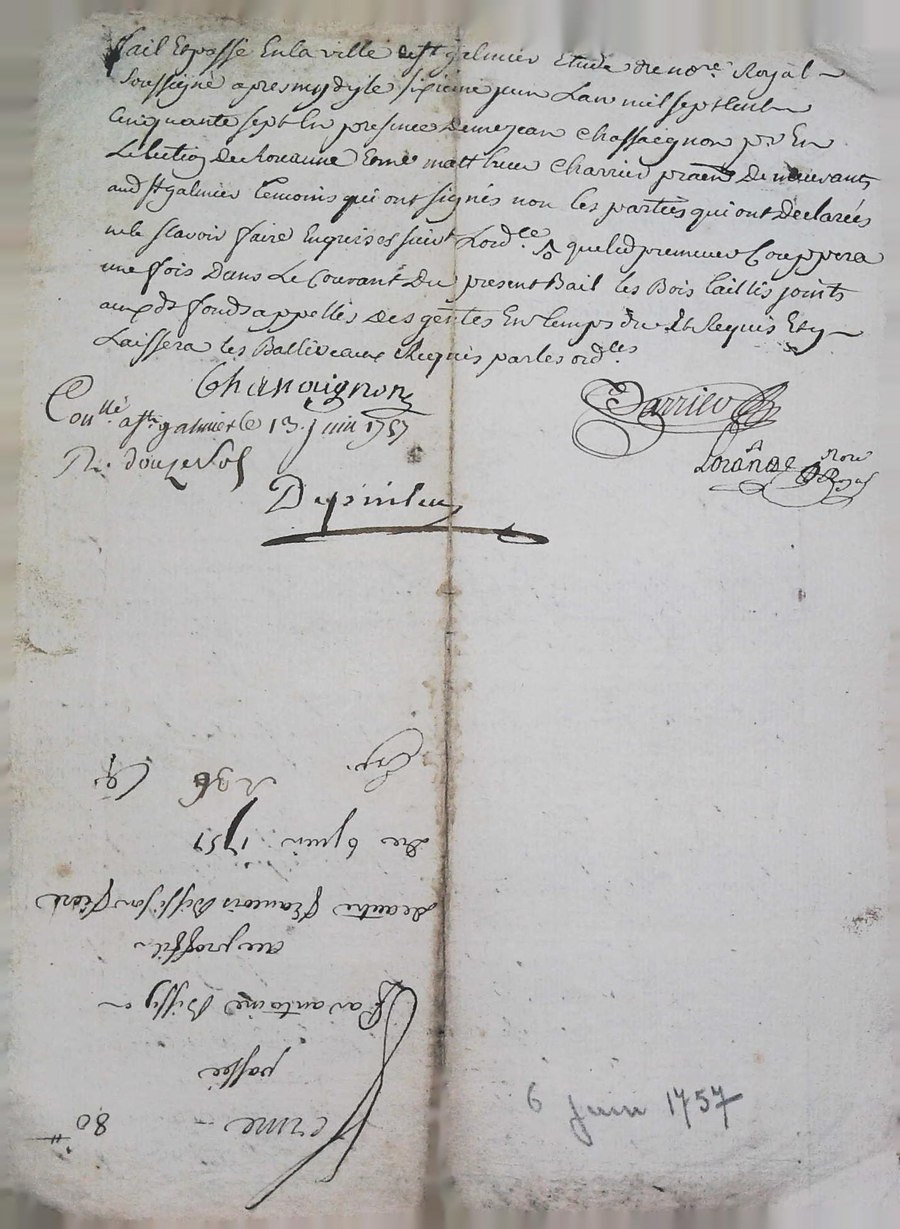 fait Et passé En la ville de st galmier Etude du nore Royal
soussigné apres mydy le sixieme juin L'an mil sept Cent
Cinquante sept En presence de me jean Chassaignon pr En
L'election de Roanne Et me matthieu Charrier praen demeurants
aud st galmier temoins qui ont signés non les parties qui ont declarées
ne le sçavoir faire Enquis Et suivt L'ordce queled preneur Couppera
une fois Dans Le Courant Du present Bail les Bois taillis joints
aux ds fonds appelles des En temps du Et Requis Et y
Laissera les Balliveaux Requis par les ordces
Chassaignon
Charrier
Conllé a st galmier le 13. juin 1757
R. douze sols
nore
Royal
Ferme 80 ₶
passée
Par antoine Bissy
au proffit
de autre François son frere
du 6 juin 1757
Exp.
6 juin 1757